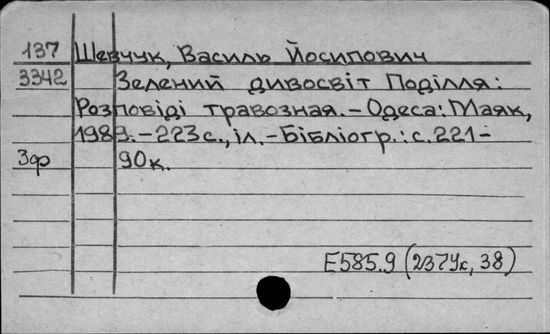 137 Шевчук, Василь Йосипович
3342 Зелений дивосвіт Поділля:
Розповіді травозная.-Одеса: Маяк,
1989.-223с., іл.-Бібліогр.: с. 221-
3ф 90к.
Е585.9 (2З7Ук, 38)